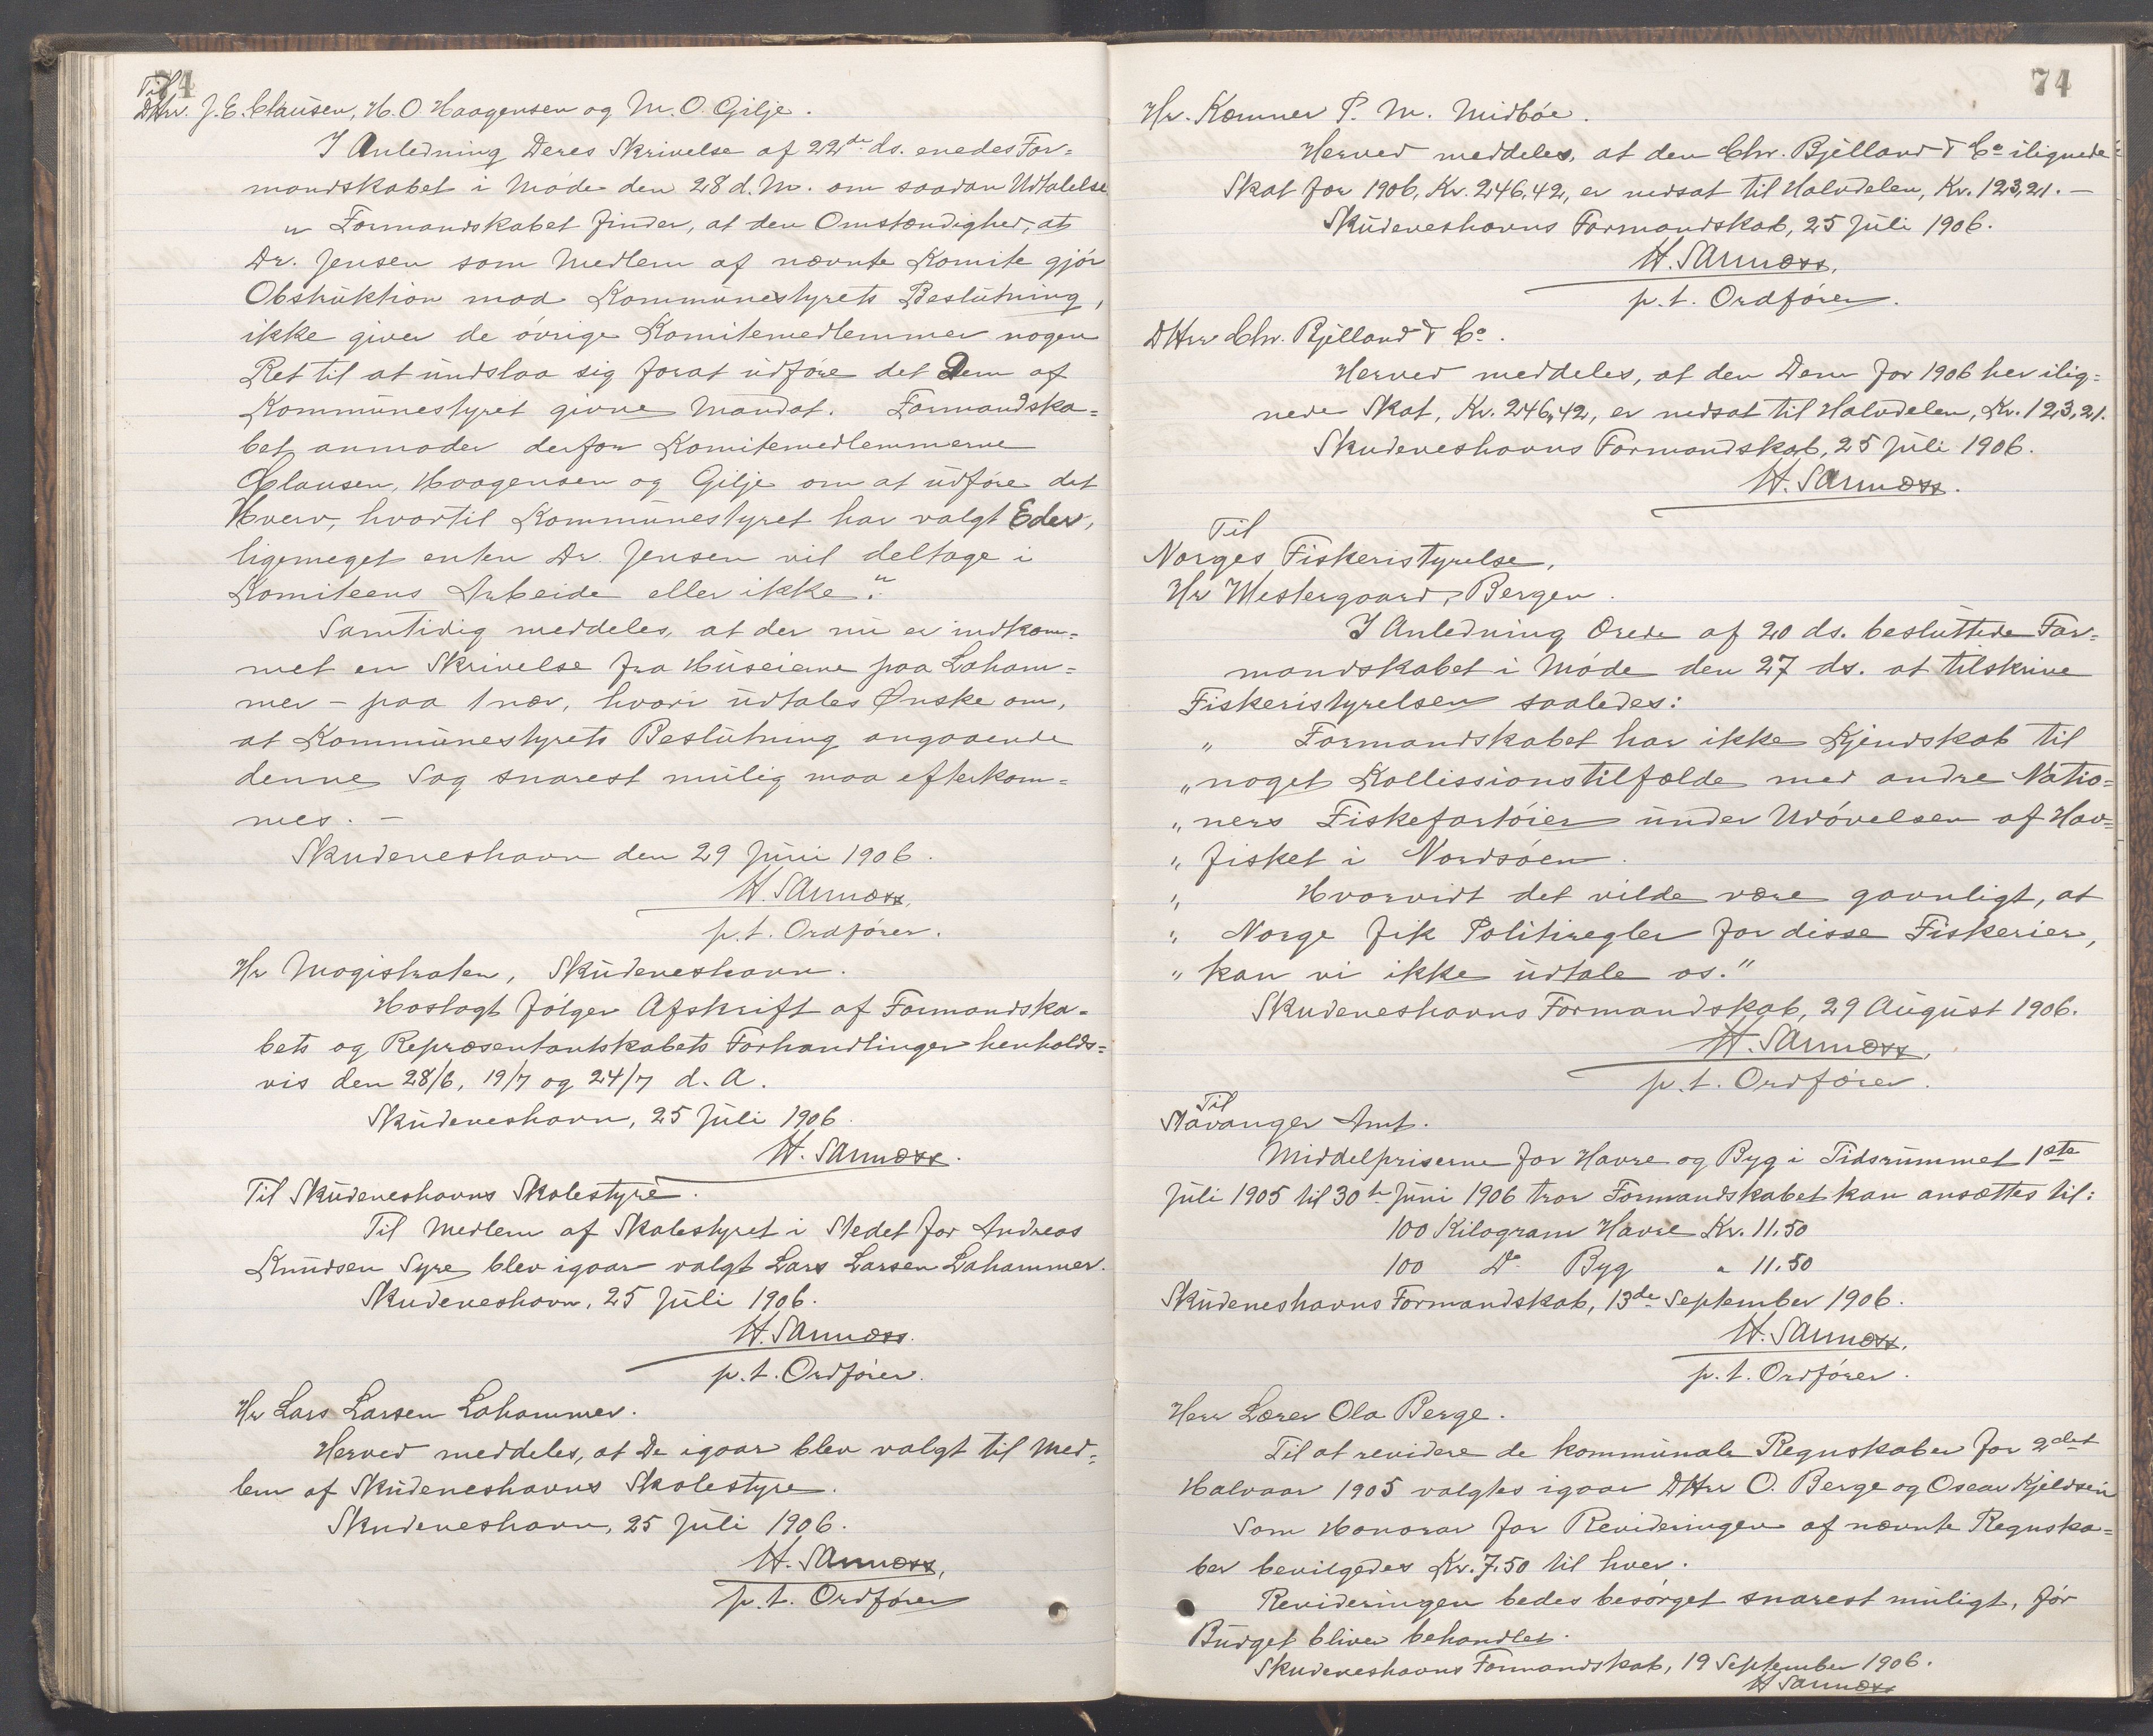 74
Til
DHrr. J. E. Clausen, H. O. Haagensen og M. O. Gilje.
I Anledning Deres Skrivelse af 22de ds. enedes For=
mandskabet i Møde den 28 d. M. om saadan Udtalelse
„ Formandskabet finder, at den Omstændighed, at
Dr. Jensen som Medlem af nævnte Komite gjør
Obstruktion mod Kommunestyrets Beslutning,
ikke giver de øvrige Komitemedlemmer nogen
Ret til at undslaa sig forat udføre det Dem af
Kommunestyret givne Mandat. Formandska=
bet anmoder derfor Komitemedlemmerne
Clausen, Haagensen og Gilje om at udføre det
Hverv, hvortil Kommunestyret har valgt Eder,
ligemeget enten Dr. Jensen vil deltage i
Komiteens Arbeide eller ikke."
Samtidig meddeles, at der nu er indkom=
met en Skrivelse fra Huseierne paa Laham=
mer - paa 1 nær, hvori udtales Ønske om,
at Kommunestyrets Beslutning angaaende
denne Sag snarest mulig maa efterkom=
mes. -
Skudeneshavn den 29 Juni 1906.
H. Sannæss,
p.t. Ordfører.
Hr Magistraten, Skudeneshavn.
Hoslagt følger Afskrift af Formandska=
bets og Repræsentantskabets Forhandlinger henholds=
vis den 28/6, 19/7 og 24/7 d. A.
Skudeneshavn, 25 Juli 1906.
H. Sannæss.
Til Skudeneshavns Skolestyre.
Til Medlem af Skolestyret i Stedet for Andreas
Knudsen Syre blev igaar valgt Lars Larsen Lahammer.
Skudeneshavn, 25 Juli 1906.
H. Sannæss.
p.t. Ordfører.
Hr Lars Larsen Lahammer.
Herved meddeles, at De igaar blev valgt til Med=
lem af Skudeneshavns Skolestyre.
Skudeneshavn, 25 Juli 1906.
H. Sannæss,
p.t. Ordfører
74
Hr. Kæmner P. M. Midbøe.
Herved meddeles, at den Chr. Bjelland & Co ilignede
Skat for 1906, Kr. 246,42, er nedsat til Halvdelen, Kr. 123,21. -
Skudeneshavns Formandskab, 25 Juli 1906.
H. Sannæss,
p.t. Ordfører.
DHrr Chr. Bjelland & Co.
Herved meddeles, at den Dem for 1906 her ilig=
nede Skat, Kr. 246,42, er nedsat til Halvdelen, Kr. 123,21.
Skudeneshavns Formandskab, 25 Juli 1906.
H. Sannæss.
Til
Norges Fiskeristyrelse,
Hr Westergaard, Bergen.
I Anledning Ærede af 20 ds. besluttede For=
mandskabet i Møde den 27 ds. at tilskrive
Fiskeristyrelsen saaledes:
„ Formandskabet har ikke Kjendskab til
„ noget Kollissionstilfælde med andre Natio=
„ ners Fiskefartøier under Udøvelsen af Hav=
„ fisket i Nordsøen.
„ Hvorvidt det vilde være gavnligt, at
„ Norge fik Politiregler for disse Fiskerier,
„ kan vi ikke udtale os."
Skudeneshavns Formandskab, 29 August 1906.
H. Sannæss,
p.t. Ordfører.
Til
Stavanger Amt.
Middelpriserne for Havre og Byg i Tidsrummet 1ste
Juli 1905 til 30te Juni 1906 tror Formandskabet kan ansættes til:
100 Kilogram Havre Kr. 11.50
100 Do Byg " 11.50
Skudeneshavns Formandskab, 13de September 1906.
H. Sannæss,
p.t. Ordfører.
Herr Lærer Ola Berge.
Til at revidere de kommunale Regnskaber for 2det
Halvaar 1905 valgtes igaar DHrr O. Berge og Oscar Kjeldsen
Som Honorar for Revideringen af nævnte Regnska=
ber bevilgedes Kr. 7.50 til hver.
Revideringen bedes besørget snarest muligt, før
Budget bliver behandlet.
Skudeneshavns Formandskab, 19 September 1906.
H Sannæss